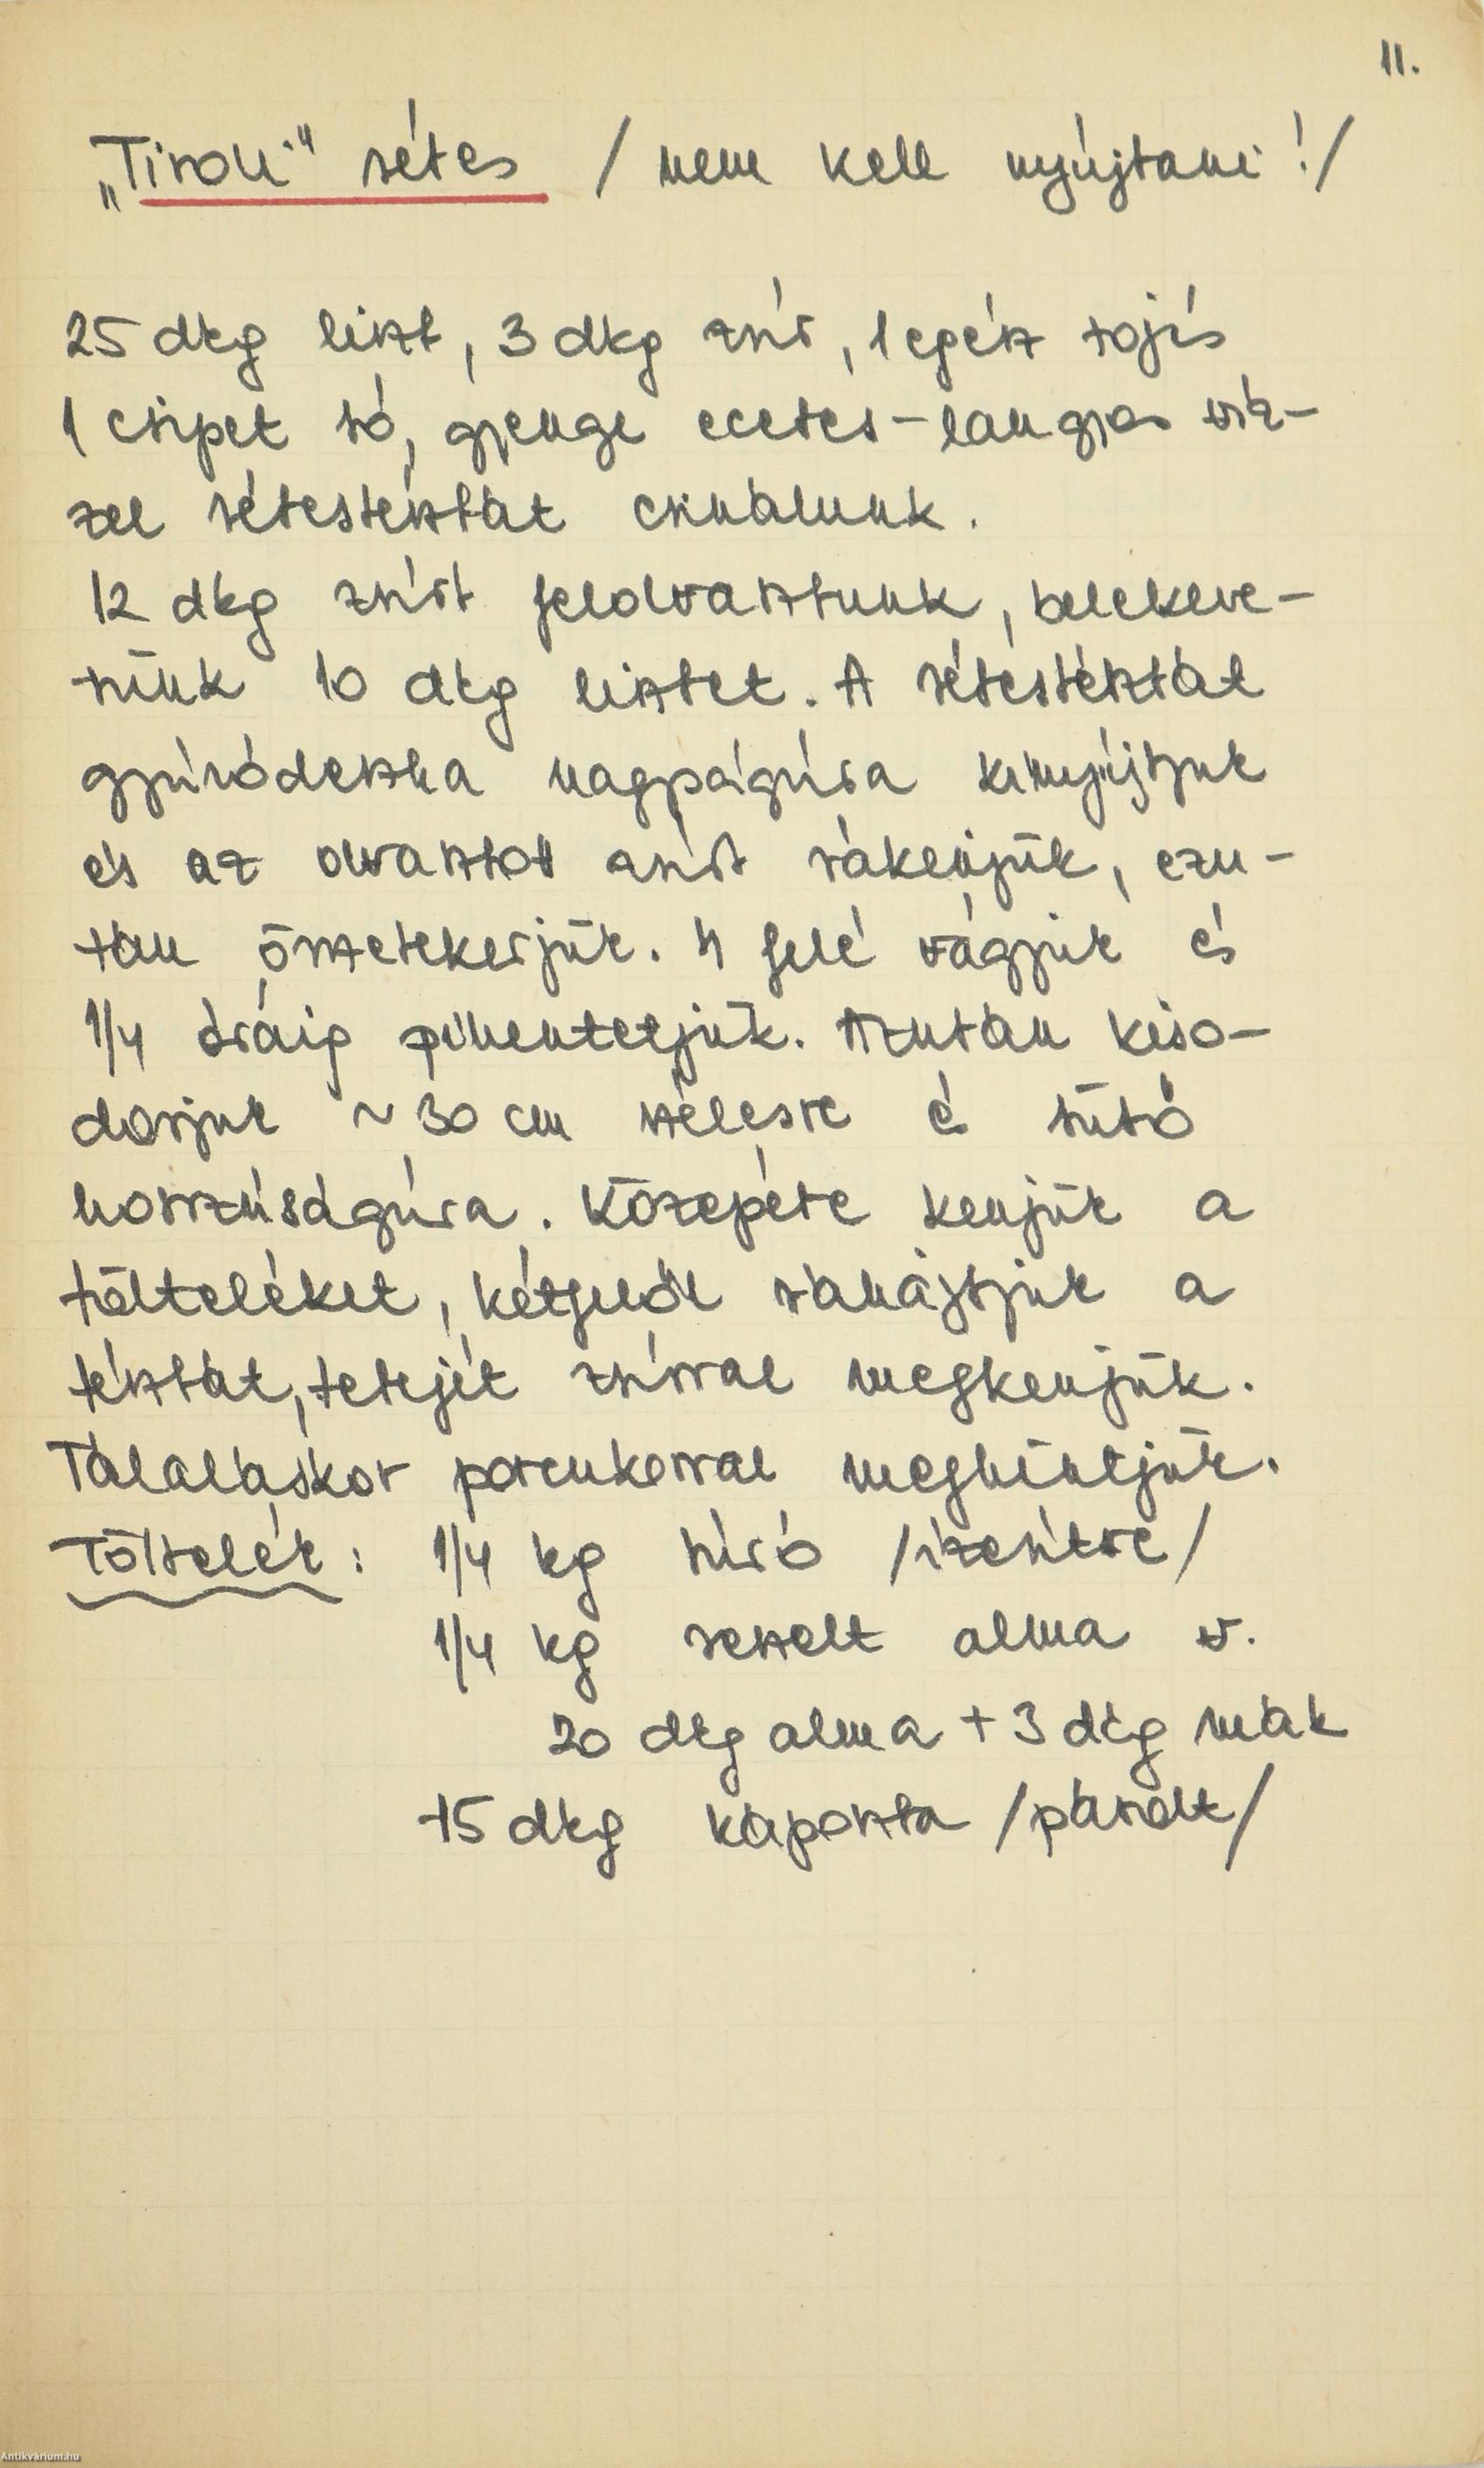 11.
„Tiroli" rétes / nem kell nyújtani!/
25 dkg liszt, 3 dkg zsír, 1 egész tojás
1 csipet só, gyenge ecetes-langyos víz-
zel rétestésztát csinálunk.
12 dkg zsírt felolvasztunk, belekeve-
rünk 10 dkg lisztet. A rétestésztát
gyúródeszka nagyságúra kinyújtjuk
és az olvasztott zsírt rákenjük, ezu-
tán összetekerjük. 4 felé vágjuk és
1/4 óráig pihentetjük. Azután kiso-
dorjuk ~ 30 cm szélesre és sütő
hosszúságúra. Közepére kenjük a
tölteléket, kétfelől ráhajtjuk a
tésztát, tetejét zsírral megkenjük.
Tálaláskor porcukorral meghintjük.
Töltelék: 1/4 kg túró /ízesítve/
1/4 kg reszelt alma v.
20 dkg alma + 3 dkg mák
15 dkg káposzta /párolt/
Antikvárium.hu